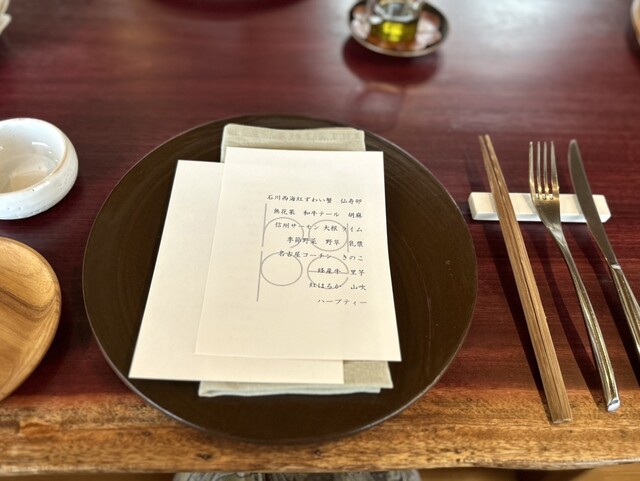 石川西海紅ずわい蟹　仏寿卵
無花果　和牛テール　胡麻
信州サーモン 大根 ライム
季節野菜　野草　乳漿
名古屋コーチン　きのこ
経産牛　里芋
紅はるか　山吹
ハーブティー